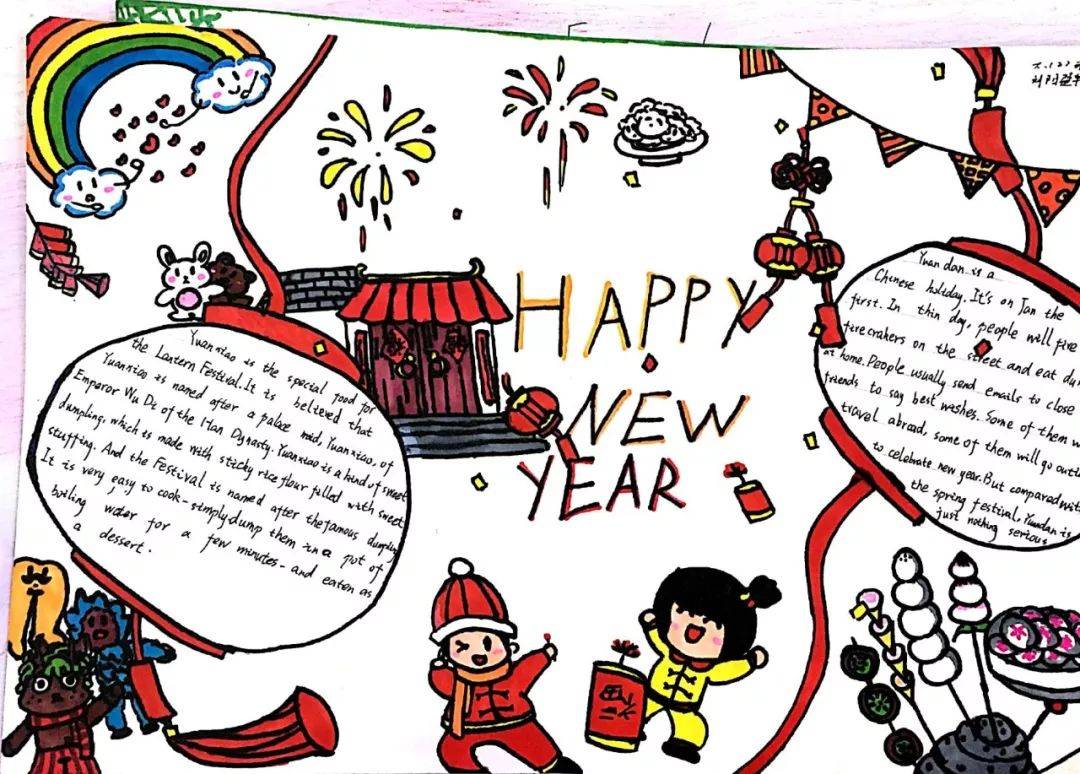 HAPPY
NEW
YEAR
Yuanxiao is the special food for
the Lantern Festival. It is believed that
Yuanxiao is named after a palace maid, Yuanxiao, of
Emperor Wu Di of the Han Dynasty. Yuanxiao is a kind of sweet
dumpling, which is made with sticky rice flour filled with sweet
stuffing. And the Festival is named after the famous dumpling
It is very easy to cook-simply dump them in a pot of
boiling water for a few minutes-and eaten as
a dessert.
Yuan dan is a
Chinese holiday. It's on Jan the
first. In thin day, people will fire
firecrakers on the street and eat du
at home. People usually send emails to close
friends to say best wishes. Some of them w
travel abroad, some of them will go outi
to celebrate new year. But compared with
the spring festival, Yuandan is
just nothing serious